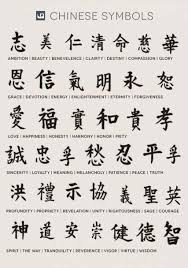 CHINESE SYMBOLS
志 美 仁 清 命 慈 華
AMBITION | BEAUTY | BENEVOLENCE | CLARITY | DESTINY | COMPASSION | GLORY
恩 信 氣 明 永 恕
GRACE | DEVOTION | ENERGY | ENLIGHTENMENT | ETERNITY | FORGIVENESS
愛 福 實 和 貴 孝
LOVE | HAPPINESS | HONESTY | HARMONY | HONOR | PIETY
誠 忠 孚 愁 忍 平 孚
SINCERITY | LOYALTY | MEANING | MELANCHOLY | PATIENCE | PEACE | TRUTH
洪 禮 示 協 義 聖 英
PROFUNDITY | PROPRIETY | REVELATION | UNITY | RIGHTEOUSNESS | SAGE | COURAGE
神 道 安 崇 健 德 智
SPIRIT | THE WAY | TRANQUILITY | REVERENCE | VIGOR | VIRTUE | WISDOM